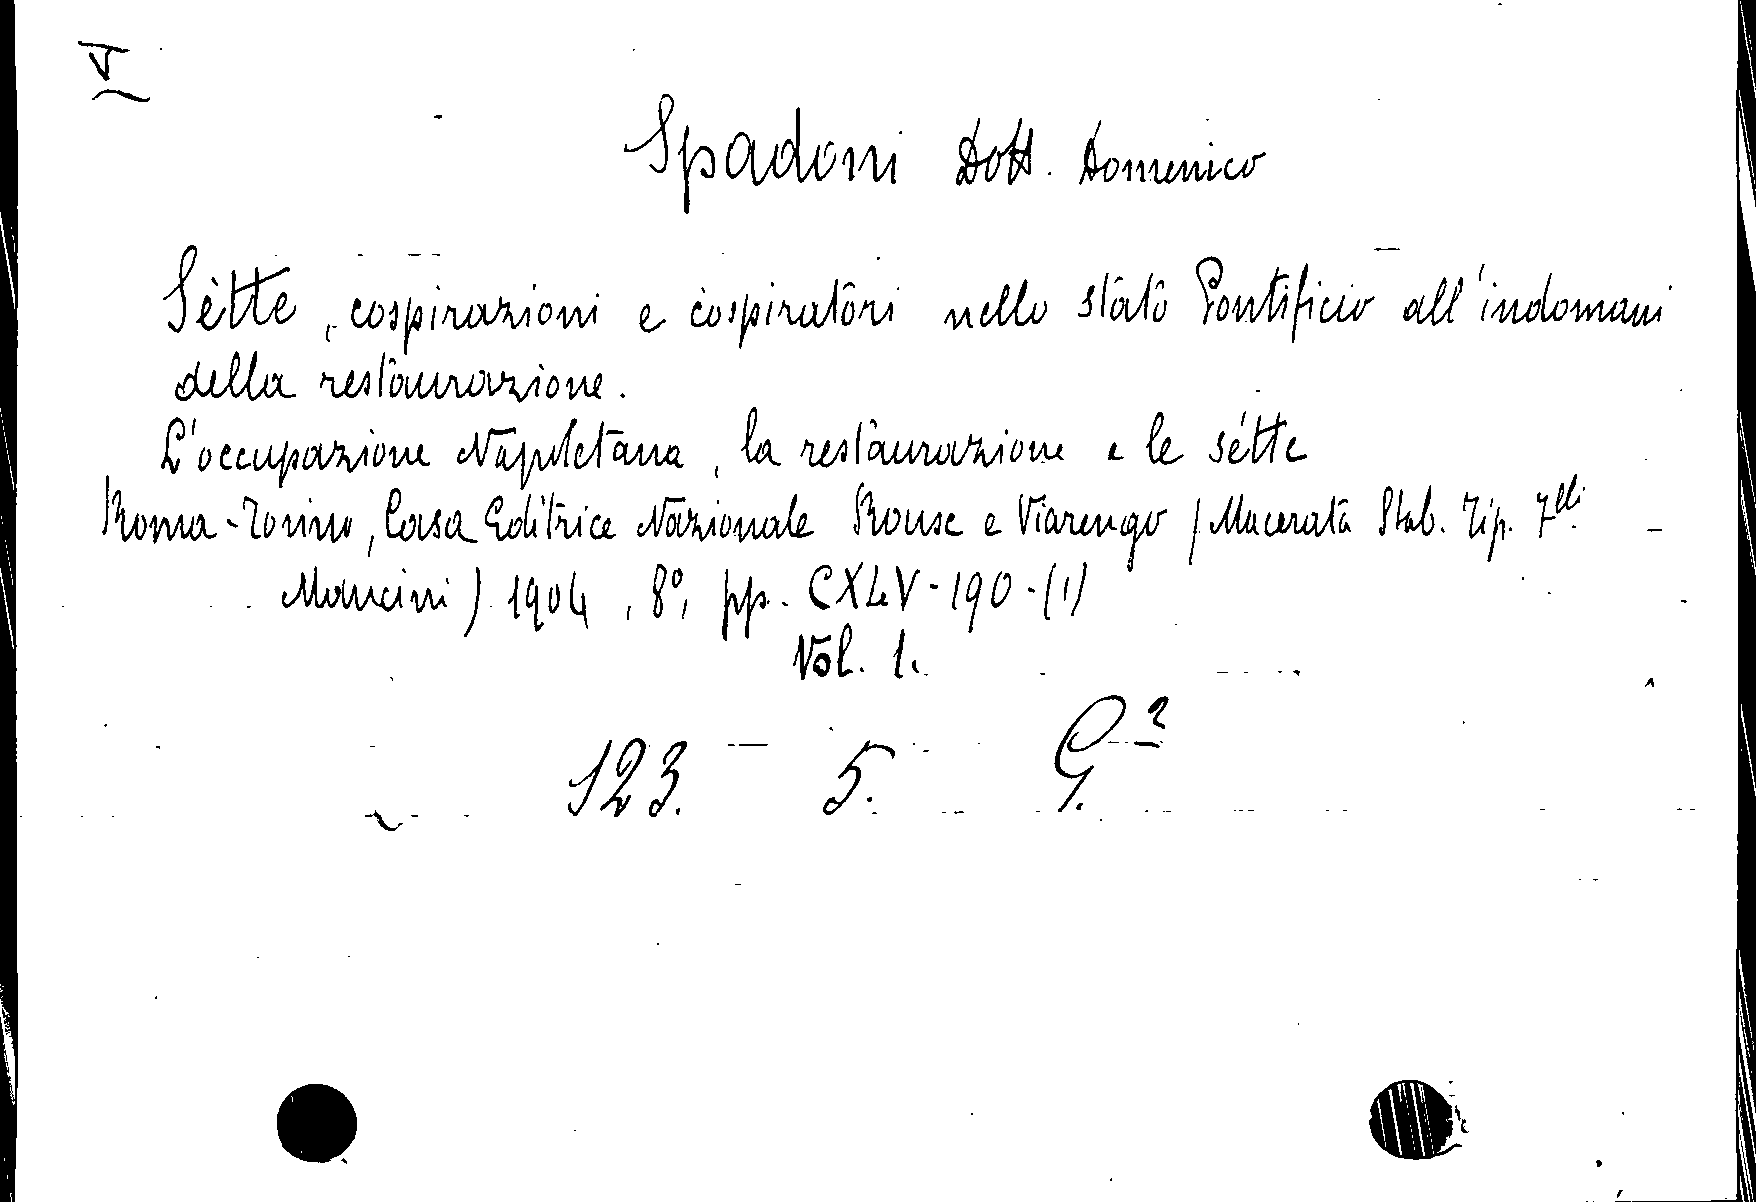 Spadoni Dott. Domenico
Sètte, cospirazioni e cospiratori nello stato Pontificio all'indomani
della restaurazione.
L'occupazione Napoletana, la restaurazione e le sètte
Roma-Torino, Casa Editrice Nazionale Rouse e Viarengo (Macerata Stab. Tip. Flli
Mancini) 1904, 8°, pp. CXLV-190-(1)
Vol. 1.
123. 5. G.2